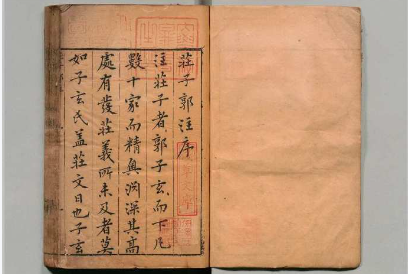 莊子郭註序
註莊子者郭子玄而下凡
數十家而精奧淵深其高
處有發莊義所未及者莫
如子玄氏蓋莊文日也子玄